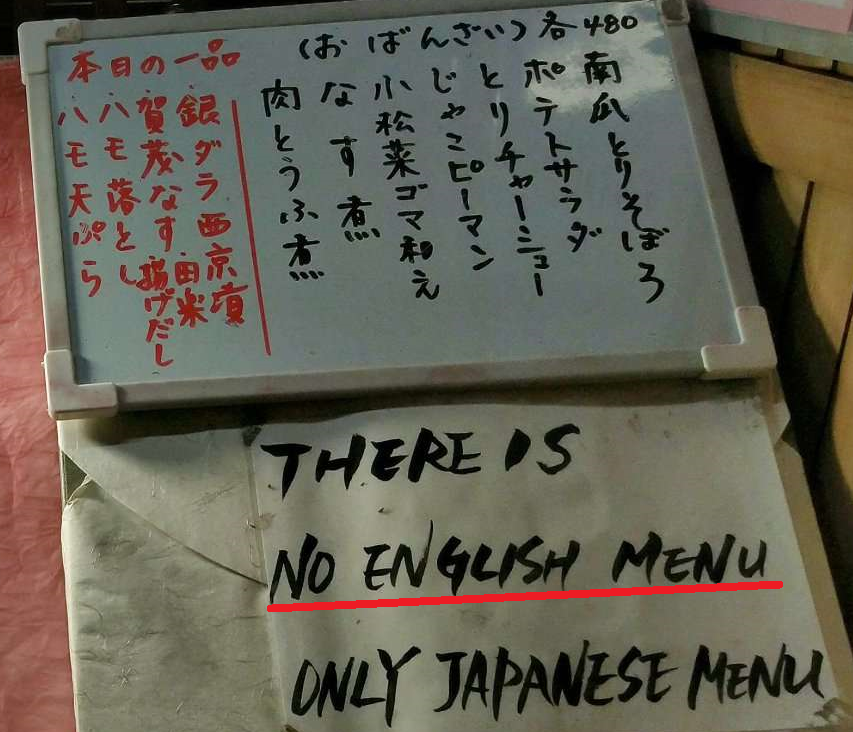 (おばんざい) 各480
南瓜とりそぼろ
ポテトサラダ
とりチャーシュー
じゃこピーマン
小松菜ゴマ和え
なす煮
肉とうふ煮
本日の一品
銀ダラ西京漬
賀茂なす揚げだし
ハモ落とし
ハモ天ぷら
THERE IS
NO ENGLISH MENU
ONLY JAPANESE MENU